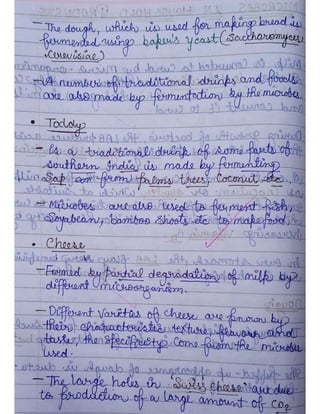 — The dough, which is used for making bread is
fermented using baker's yeast (Saccharomyces
cerevisiae)
— A number of traditional drinks and foods
are also made by fermentation by the microbes.
• Today
— Is a traditional drink of some parts of
southern India is made by fermenting
Sap from palms trees, Coconut etc.
— Microbes are also used to ferment fish,
Soyabean, bamboo shoots etc to make food.
• Cheese
— Formed by partial degradation of milk by
different microorganism.
— Different Varities of cheese are known by
their characteristic texture, flavour and
taste, the specificity come from the microbes
used.
— The large holes in "Swiss Cheese" are due
to production of a large amount of CO2